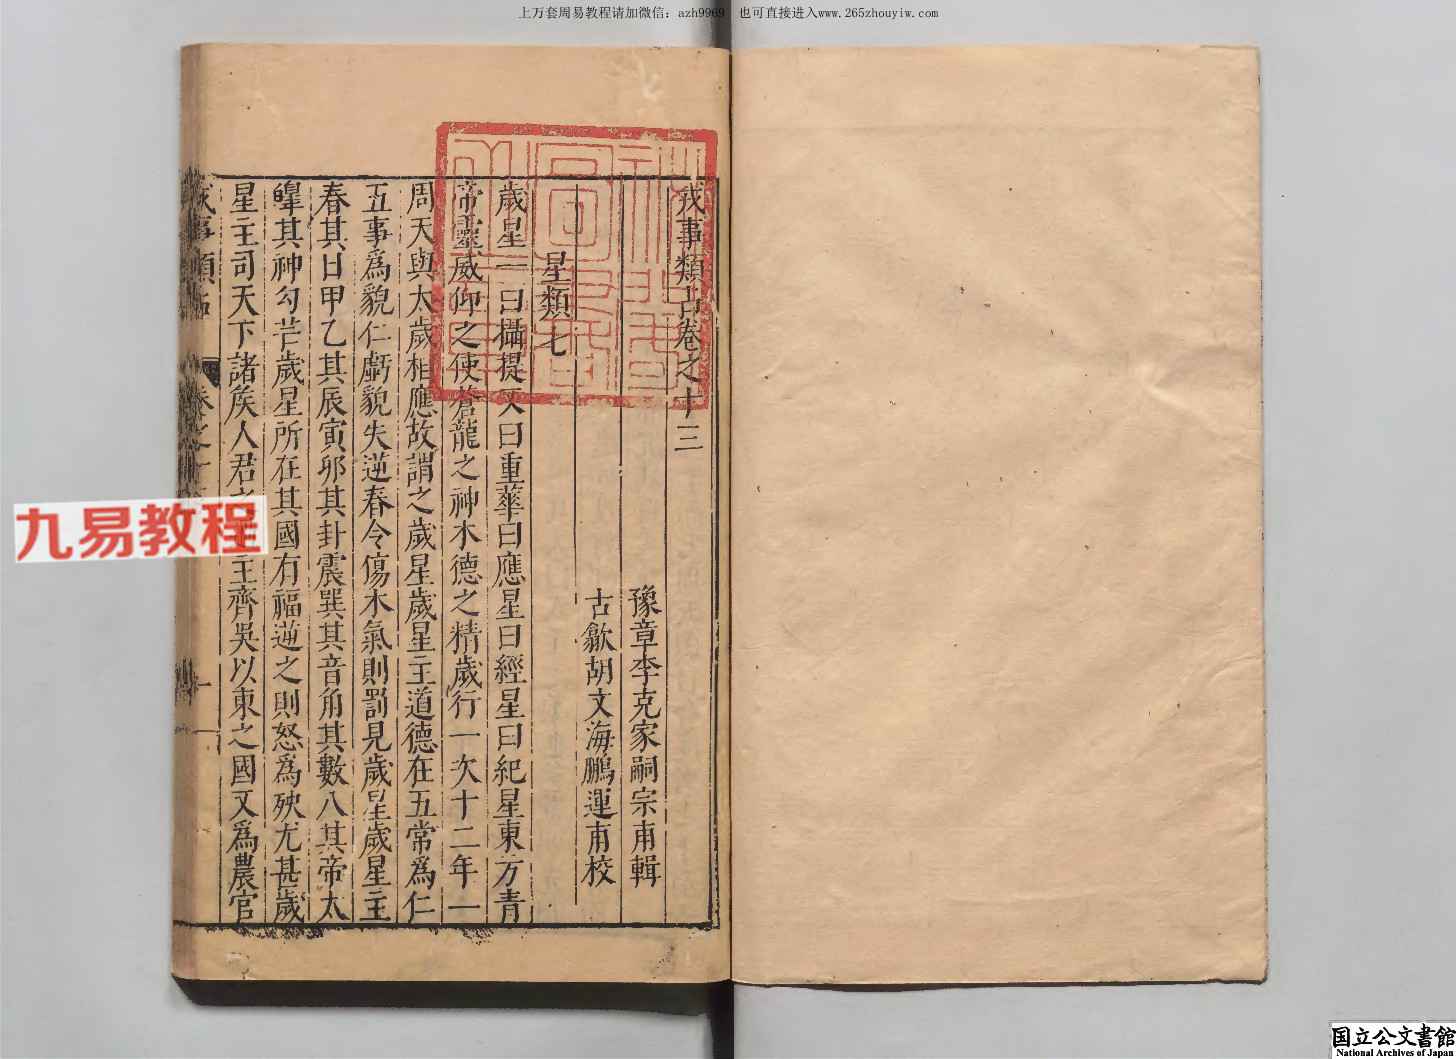 上万套周易教程请加微信：azh9969　也可直接进入www.265zhouyiw.com
戎事類占卷之十三
豫章李克家嗣宗甫輯
古歙胡文海鵬運甫校
星類七
歲星一曰攝提又曰重華曰應星曰經星曰紀星東方青
帝靈威仰之使蒼龍之神木德之精歲行一次十二年一
周天與太歲相應故謂之歲星歲星主道德在五常爲仁
五事爲貌仁虧貌失逆春令傷木氣則罰見歲星歲星主
春其日甲乙其辰寅夘其卦震巽其音角其數八其帝太
皡其神勾芒歲星所在其國有福逆之則怒爲殃尤甚歲
星主司天下諸侯人君之
主齊吳以東之國又爲農官
九易教程
国立公文書館
National Archives of Japan